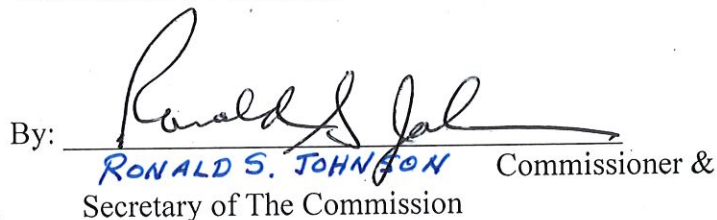 By: Ronald S Joh
RONALD S. JOHNSON Commissioner &
Secretary of The Commission